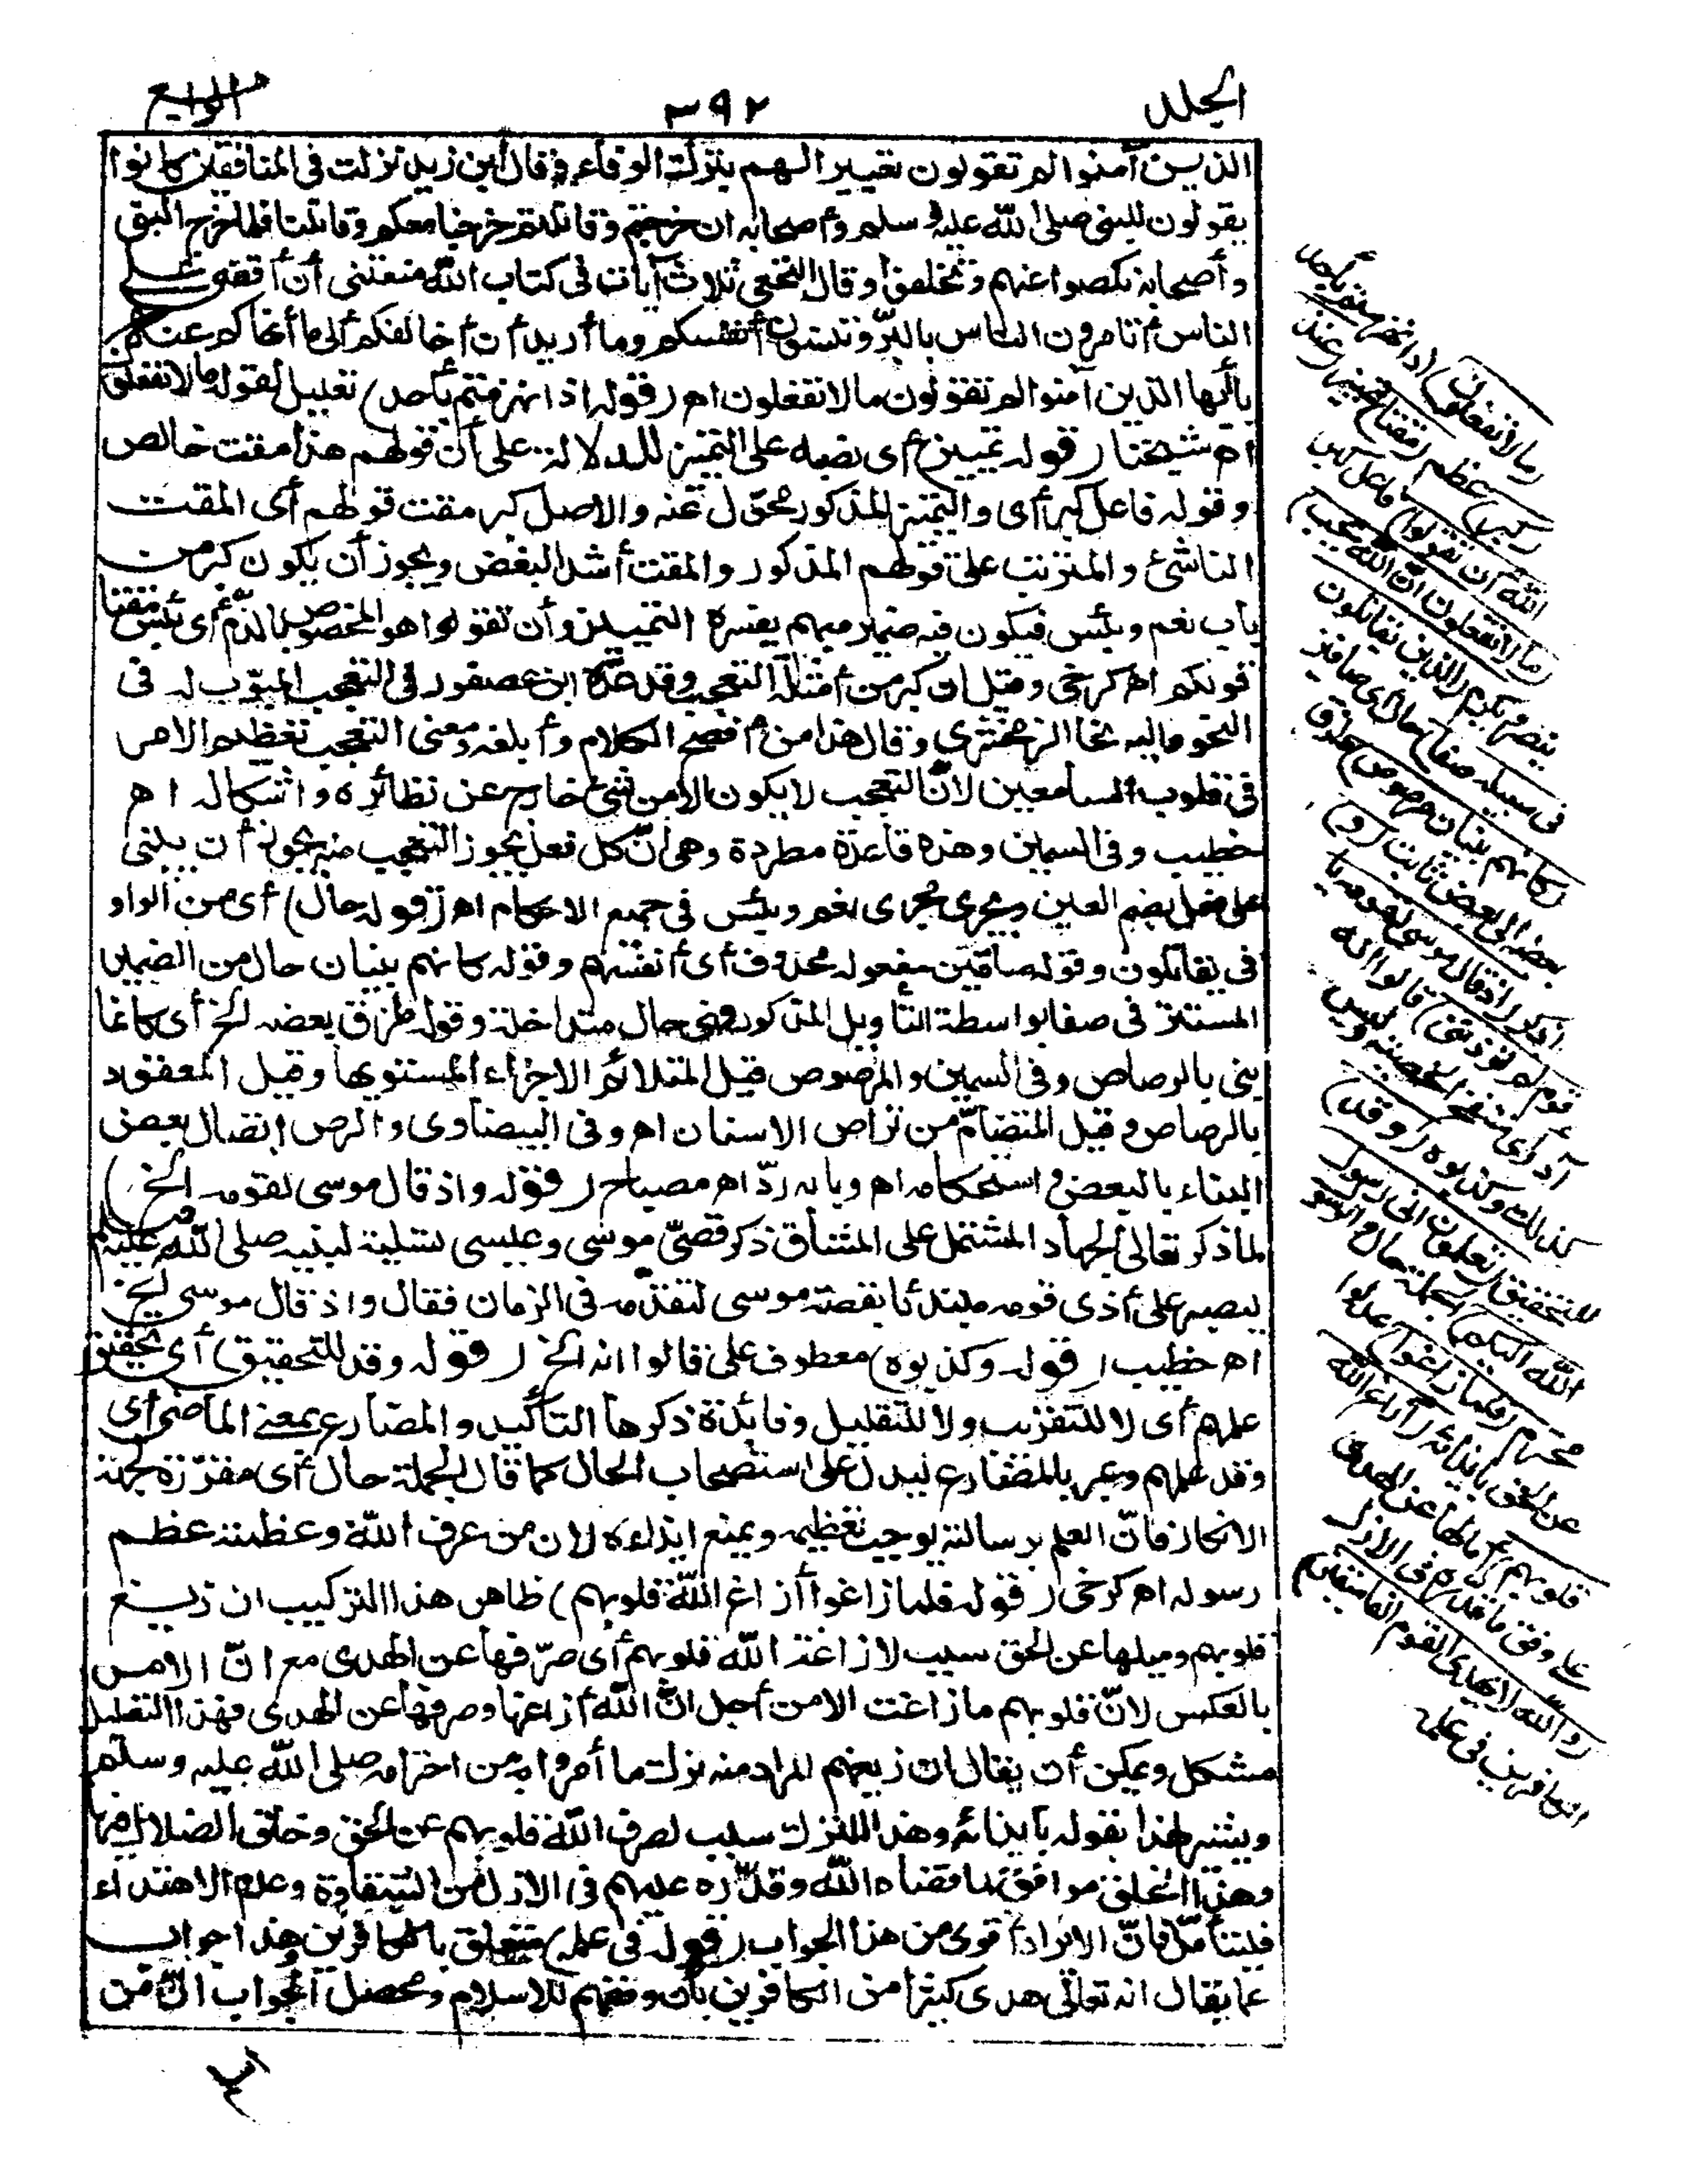 الجلد ٣٩٢ الرابع
الذين آمنوا لم تقولون تعيير الهم بترك الوفاء وقال ابن زيد نزلت فى المنافقين كانوا
يقولون للنبى صلى الله عليه وسلم وأصحابه ان خرجتم وقاتلتم خرجنا معكم وقاتلنا فلما خرج النبى
وأصحابه نكصوا عنهم وتخلفوا وقال النخعى ثلاث آيات فى كتاب الله منعتنى أن أقضى على
الناس أتامرون الناس بالبرّ وتنسون أنفسكم وما أريد أن أخالفكم الى ما أنهاكم عنه
ياأيها الذين آمنوا لم تقولون مالا تفعلون اه (قوله اذ انهزمتم بأحد) تعليل لقوله مالا تفعلون
اه شيخنا (قوله تمييز) أى نصبه على التمييز للدلالة على أن قولهم هذا مقت خالص
وقوله فاعل كبر أى والتمييز المذكور محوّل عنه والاصل كبر مقت قولهم أى المقت
الناشئ والمترتب على قولهم المذكور والمقت أشد البغض ويجوز أن يكون كبر من
باب نعم وبئس فيكون فيه ضمير مبهم يفسره التمييز وأن تقولوا هو المخصوص بالذم أى بئس مقتا
قولكم اه كرخى وقيل ان كبر من أمثلة التعجب وقد عدّه ابن عصفور فى التعجب المبوّب له فى
النحو واليه نحا الزمخشرى وقال هذا من أفصح الكلام وأبلغه ومعنى التعجب تعظيم الامر
فى قلوب السامعين لانّ التعجب لا يكون الا من شئ خارج عن نظائره واشكاله اه
خطيب وفى السمين وهذه قاعدة مطردة وهى أنّ كل فعل يجوز التعجب منه يجوز أن يبنى
على فعل بضم العين ويجرى مجرى نعم وبئس فى جميع الاحكام اه (قوله حال) أى من الواو
فى يقاتلون وقوله صافين مفعوله محذوف أى أنفسهم وقوله كانهم بنيان حال من الضمير
المستتر فى صفا بواسطة التأويل المذكور وهى حال متداخلة وقوله ملزق بعضه الخ أى كانما
بنى بالرصاص وفى السمين والمرصوص قيل المتلائم الاجزاء المستويها وقيل المعقود
بالرصاص وقيل المتضامّ من تراص الاسنان اه وفى البيضاوى والرص اتصال بعض
البناء بالبعض واستحكامه اه وبابه ردّ اه مصباح (قوله واذ قال موسى لقومه الخ)
لما ذكر تعالى الجهاد المشتمل على المشاق ذكر قصتى موسى وعيسى تسلية لنبيه صلى الله عليه وسلم
ليصبر على أذى قومه مبتدئا بقصة موسى لتقدّمه فى الزمان فقال واذ قال موسى الخ
اه خطيب (قوله وكذبوه) معطوف على قالوا انه الخ (قوله وقد للتحقيق) أى تحقيق
علمهم أى لا للتقريب ولا للتقليل وفائدة ذكرها التأكيد والمضارع بمعنى الماضى أى
وقد علمتم وعبر بالمضارع ليدل على استصحاب الحال كما قال الجملة حال أى مقررة لجهة
الانكار فانّ العلم برسالته يوجب تعظيمه ويمنع ايذاءه لان من عرف الله وعظمته عظم
رسوله اه كرخى (قوله فلما زاغوا أزاغ الله قلوبهم) ظاهر هذا التركيب ان زيغ
قلوبهم وميلها عن الحق سبب لازاغة الله قلوبهم أى صرفها عن الهدى مع انّ الامر
بالعكس لانّ قلوبهم ما زاغت الا من أجل انّ الله أزاغها وصرفها عن الهدى فهذا التعليل
مشكل ويمكن أن يقال ان زيغهم المراد منه ترك ما أمروا به من احترامه صلى الله عليه وسلم
ويشير لهذا بقوله بايذائه وهذا الترك سبب لصرف الله قلوبهم عن الحق وخلق الضلال فيها
وهذا الخلق موافق لما قضاه الله وقدّره عليهم فى الازل من الشقاوة وعدم الاهتداء
فليتأمّل فانّ الايراد أقوى من هذا الجواب (قوله فى علمه) متعلق بالكافرين وهذا جواب
عما يقال انه تعالى هدى كثيرا من الكافرين بأن وفقهم للاسلام ومحصل الجواب انّ من
(مالا تفعلون) اذ انهزمتم بأحد
(كبر) عظم (مقتا) تمييز (عند
الله أن تقولوا) فاعل كبر
(مالا تفعلون انّ الله يحب)
ينصر ويكرم (الذين يقاتلون
فى سبيله صفا) حال أى صافين
(كانهم بنيان مرصوص) ملزق
بعضه الى بعض ثابت (و)
اذكر (اذ قال موسى لقومه يا
قوم لم تؤذوننى) قالوا انه
آدر أى منتفخ الخصية وليس
كذلك وكذبوه (وقد)
للتحقيق (تعلمون أنى رسول
الله اليكم) الجملة حال والرسول
محترم (فلما زاغوا) عدلوا
عن الحق بايذائه (أزاغ الله
قلوبهم) أمالها عن الهدى
على وفق ما قدره فى الازل
(والله لا يهدى القوم الفاسقين)
الكافرين فى علمه